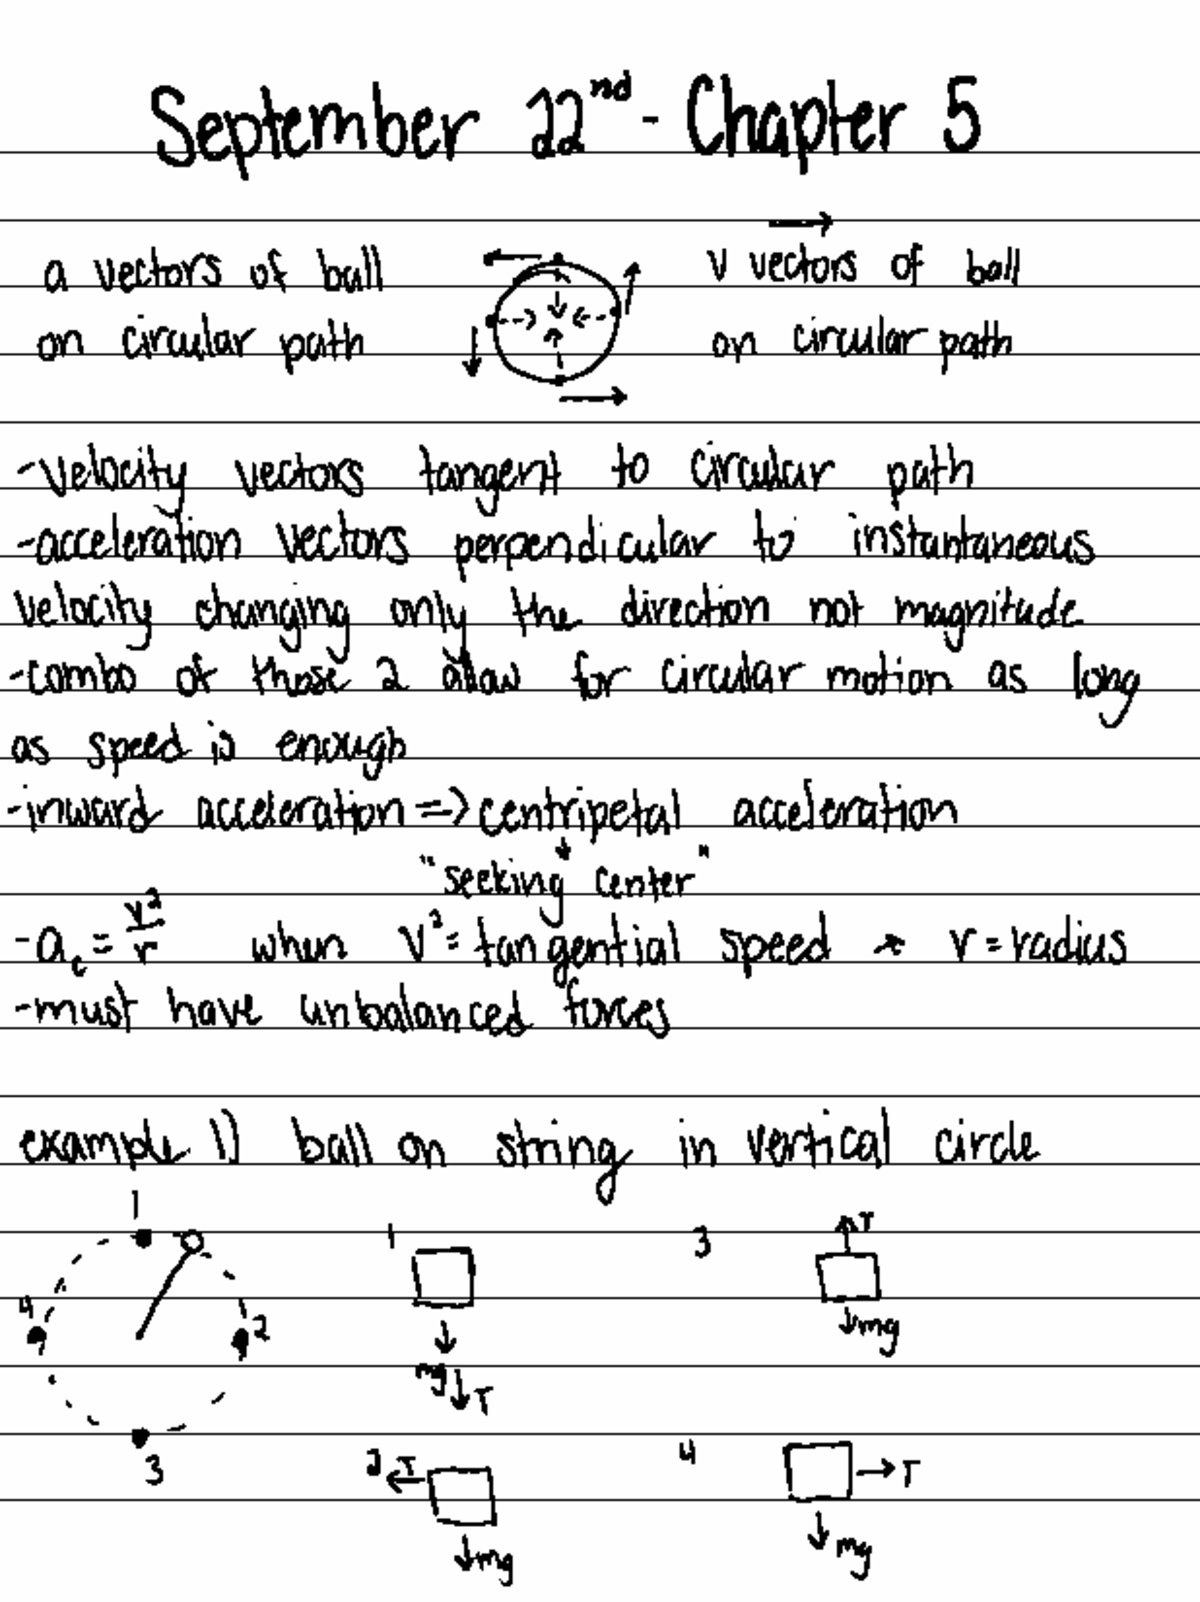 September 22nd - Chapter 5
a vectors of ball
on circular path
v vectors of ball
on circular path
-velocity vectors tangent to circular path
-acceleration vectors perpendicular to instantaneous
velocity changing only the direction not magnitude
-combo of those 2 allow for circular motion as long
as speed is enough
-inward acceleration => centripetal acceleration
"seeking center"
-ac = v²/r when v² = tangential speed * r = radius
-must have unbalanced forces
example 1) ball on string in vertical circle
1
4
2
3
1
mg
T
3
T
mg
2
T
mg
4
T
mg